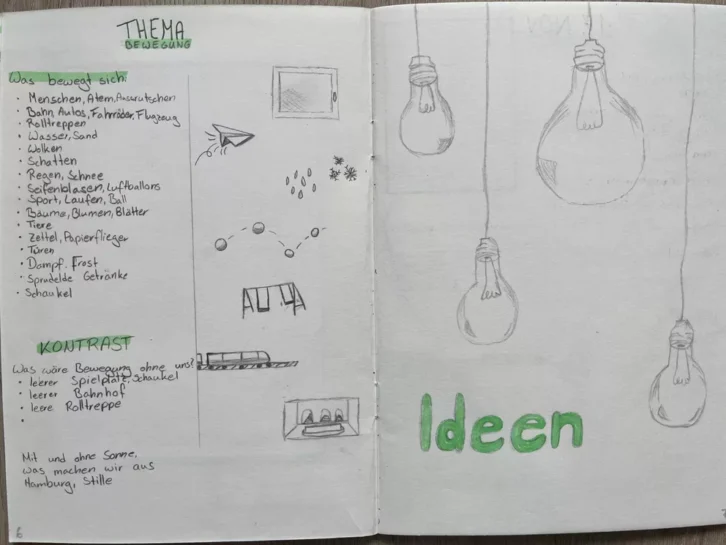 THEMA
BEWEGUNG
Was bewegt sich
· Menschen, Atem, Ausrutschen
· Bahn, Autos, Fahrräder, Flugzeug
· Rolltreppen
· Wasser, Sand
· Wolken
· Schatten
· Regen, Schnee
· Seifenblasen, Luftballons
· Sport, Laufen, Ball
· Bäume, Blumen, Blätter
· Tiere
· Zettel, Papierflieger
· Türen
· Dampf, Frost
· Sprudelde Getränke
· Schaukel
KONTRAST
Was wäre Bewegung ohne uns?
· leerer Spielplatz, Schaukel
· leerer Bahnhof
· leere Rolltreppe
·
Mit und ohne Sonne.
Was machen wir aus
Hamburg, Stille
6
Ideen